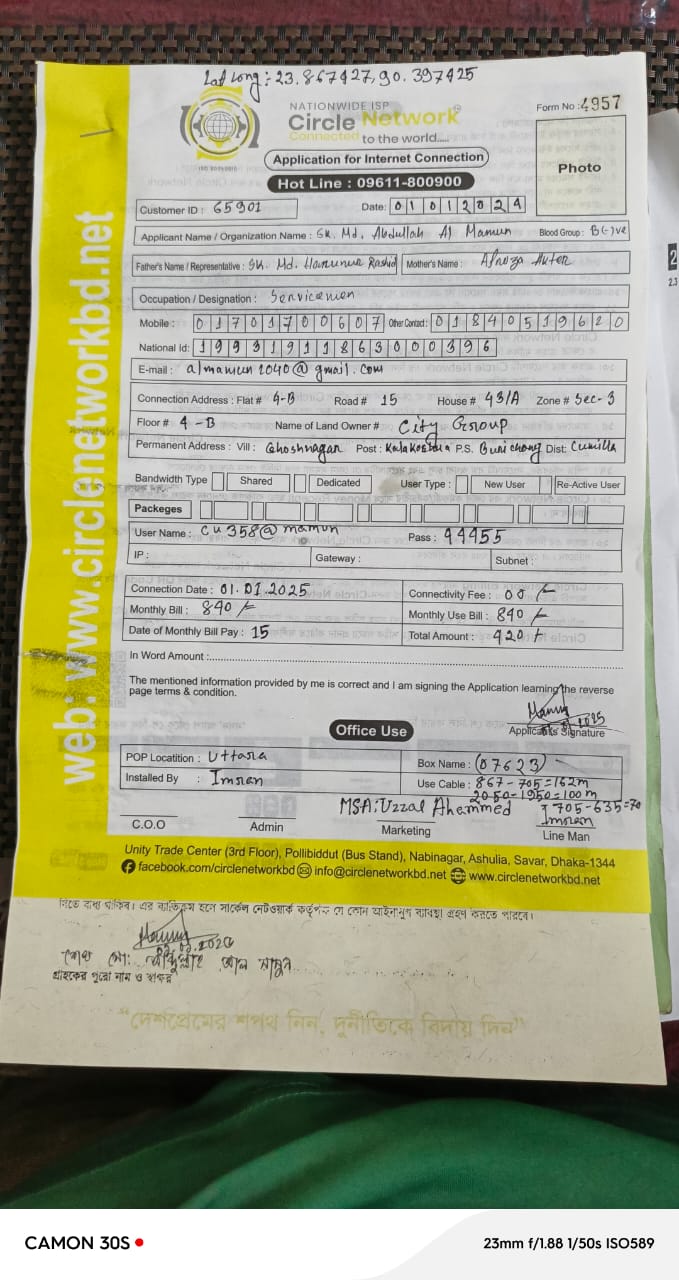 Lat Long: 23.867427,90.397425
NATIONWIDE ISP
Circle Network
Connected to the world....
Form No : 4957
ISO 9001:2015
Application for Internet Connection
Photo
Hot Line : 09611-800900
Customer ID : 65901
Date: 01012024
Applicant Name / Organization Name : SK. Md. Abdullah Al Mamun Blood Group : B(-)ve
Father's Name / Representative : SK. Md. Harunur Rashid Mother's Name : Afroza Akter
Occupation / Designation : Serviceman
Mobile : 01701700607 Other Contact : 01840519620
National Id: 19931911863000396
E-mail : almamun1040@gmail.com
Connection Address : Flat # 4-B Road # 15 House # 43/A Zone # Sec-3
Floor # 4-B Name of Land Owner # City Group
Permanent Address : Vill : Ghoshnagar Post : P.S. Burichang Dist: Cumilla
Bandwidth Type Shared Dedicated User Type : New User Re-Active User
Packeges
User Name : cu358@mamun Pass : 44455
IP : Gateway : Subnet :
Connection Date : 01.01.2025 Connectivity Fee : 00/-
Monthly Bill : 840/- Monthly Use Bill : 840/-
Date of Monthly Bill Pay : 15 Total Amount : 420/-
In Word Amount :
The mentioned information provided by me is correct and I am signing the Application learning the reverse
page terms & condition.
Applicant's Signature
Office Use
POP Locatition : Uttara Box Name : (07623)
Installed By : Imran Use Cable : 867-705=162m
2050-1950=100m
MSA: Uzzal Ahammed 705-635=70
Imran
C.O.O Admin Marketing Line Man
Unity Trade Center (3rd Floor), Pollibiddut (Bus Stand), Nabinagar, Ashulia, Savar, Dhaka-1344
facebook.com/circlenetworkbd info@circlenetworkbd.net www.circlenetworkbd.net
web: www.circlenetworkbd.net
দিতে বাধ্য থাকিব। এর ব্যতিক্রম হলে সার্কেল নেটওয়ার্ক কর্তৃপক্ষ যে কোন আইনানুগ ব্যবস্থা গ্রহণ করতে পারবে।
শেখ মো: আব্দুল্লাহ আল মামুন
গ্রাহকের পুরো নাম ও স্বাক্ষর
“দেশপ্রেমের শপথ নিন, দুর্নীতিকে বিদায় দিন”
CAMON 30S
23mm f/1.88 1/50s ISO589